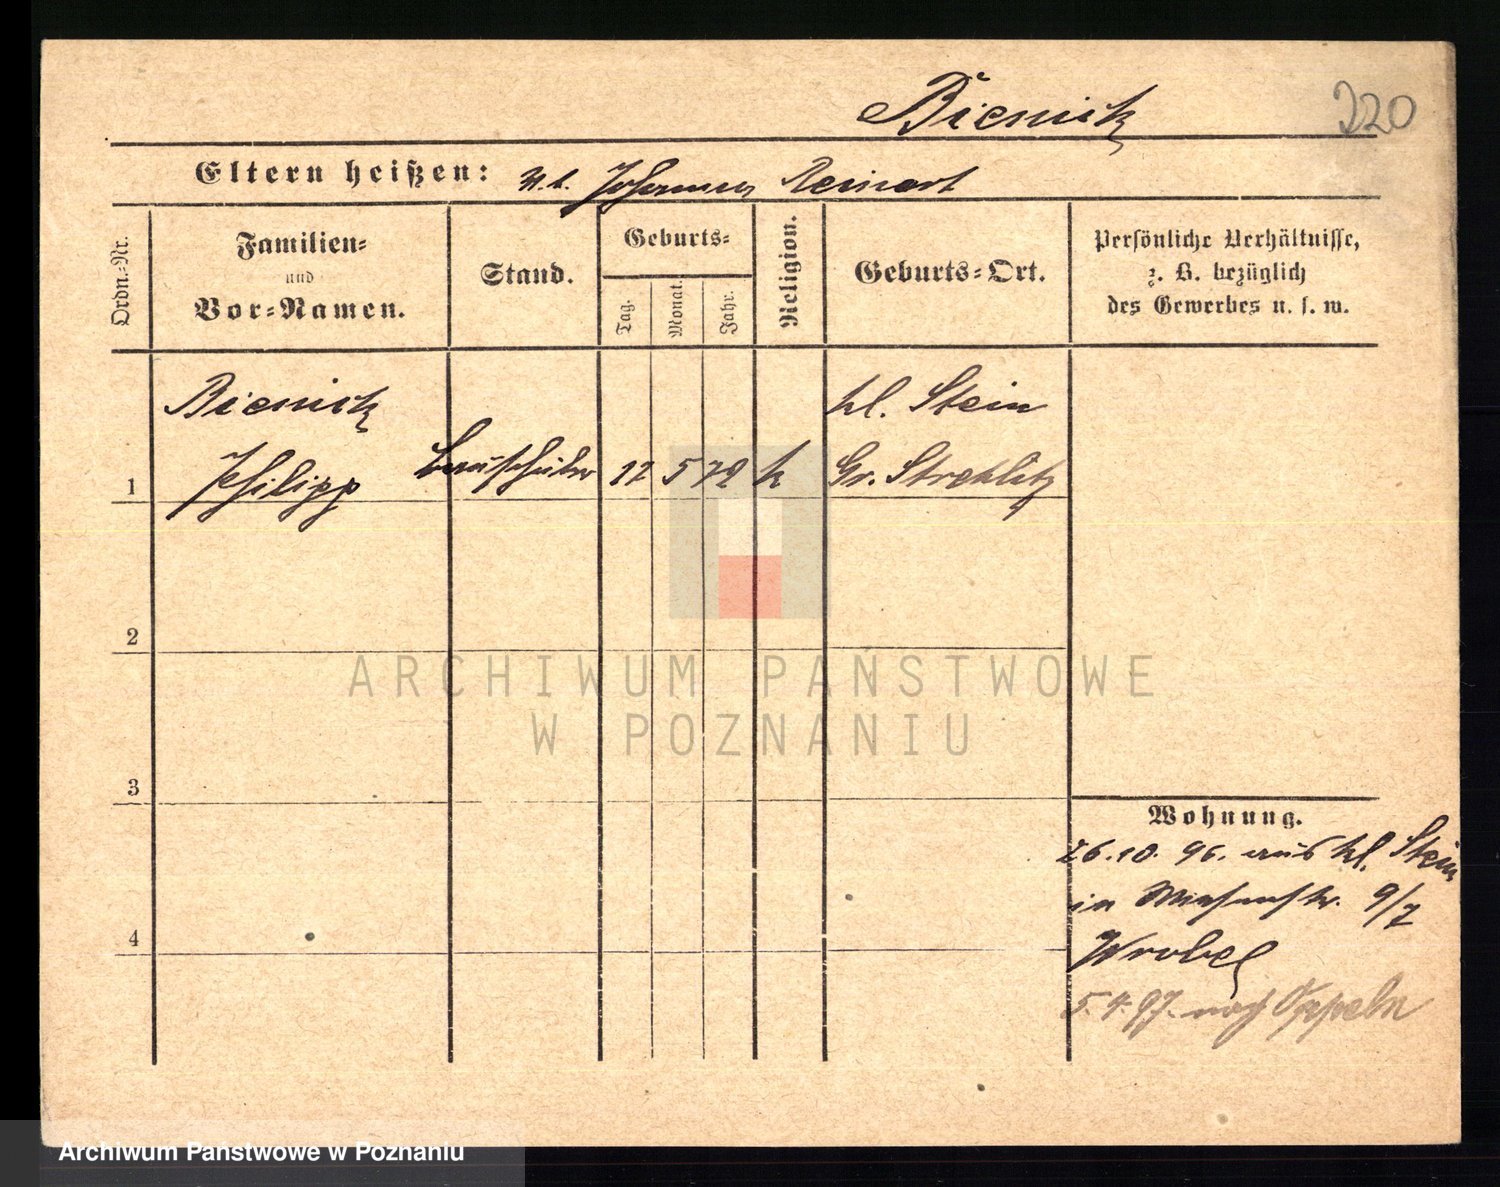 Bienick
220
Eltern heißen: u. t. Johannes Reinert
Ordn.=Nr.
Familien=
und
Vor=Namen.
Stand.
Geburts=
Tag.
Monat.
Jahr.
Religion.
Geburts=Ort.
Persönliche Verhältnisse,
z. B. bezüglich
des Gewerbes u. s. w.
Bienick
kl. Stein
1 Philipp Bauschüler 5 k Gr. Strehlitz
2
3
4
Wohnung.
26.10.96. aus kl. Stein
in Wiesenstr. 9/7
Wrobel
5.4.97. nach Oppeln
ARCHIWUM PAŃSTWOWE
W POZNANIU
Archiwum Państwowe w Poznaniu